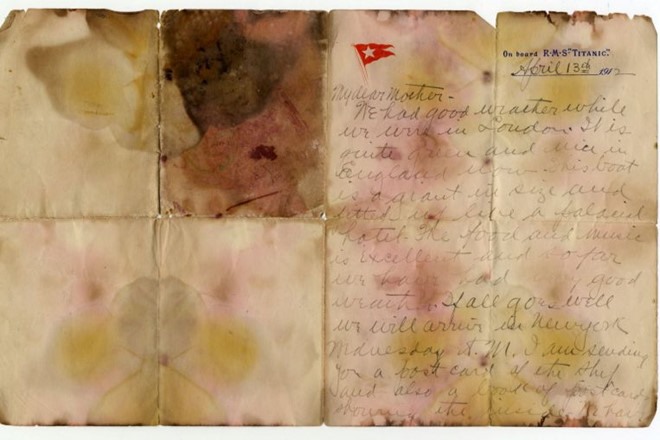 On board R·M·S "TITANIC".
April 13th 1912
My dear Mother -
We had good weather while
we were in London. It is
quite green and nice in
England now. This boat
is a giant in size and
fitted up like a palacial
hotel. The food and music
is excellent and so far
we have had very good
weather. If all goes well
we will arrive in New York
Wednesday A.M. I am sending
you a post card of the ship
and also a book of Post cards
showing the inside